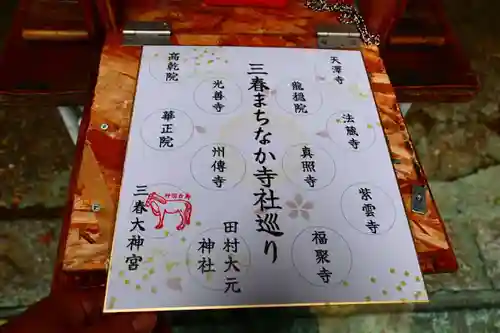 三春まちなか寺社巡り
天澤寺
法蔵寺
紫雲寺
龍穏院
真照寺
福聚寺
高乾院
光善寺
華正院
州傳寺
田村大元
神社
三春大神宮